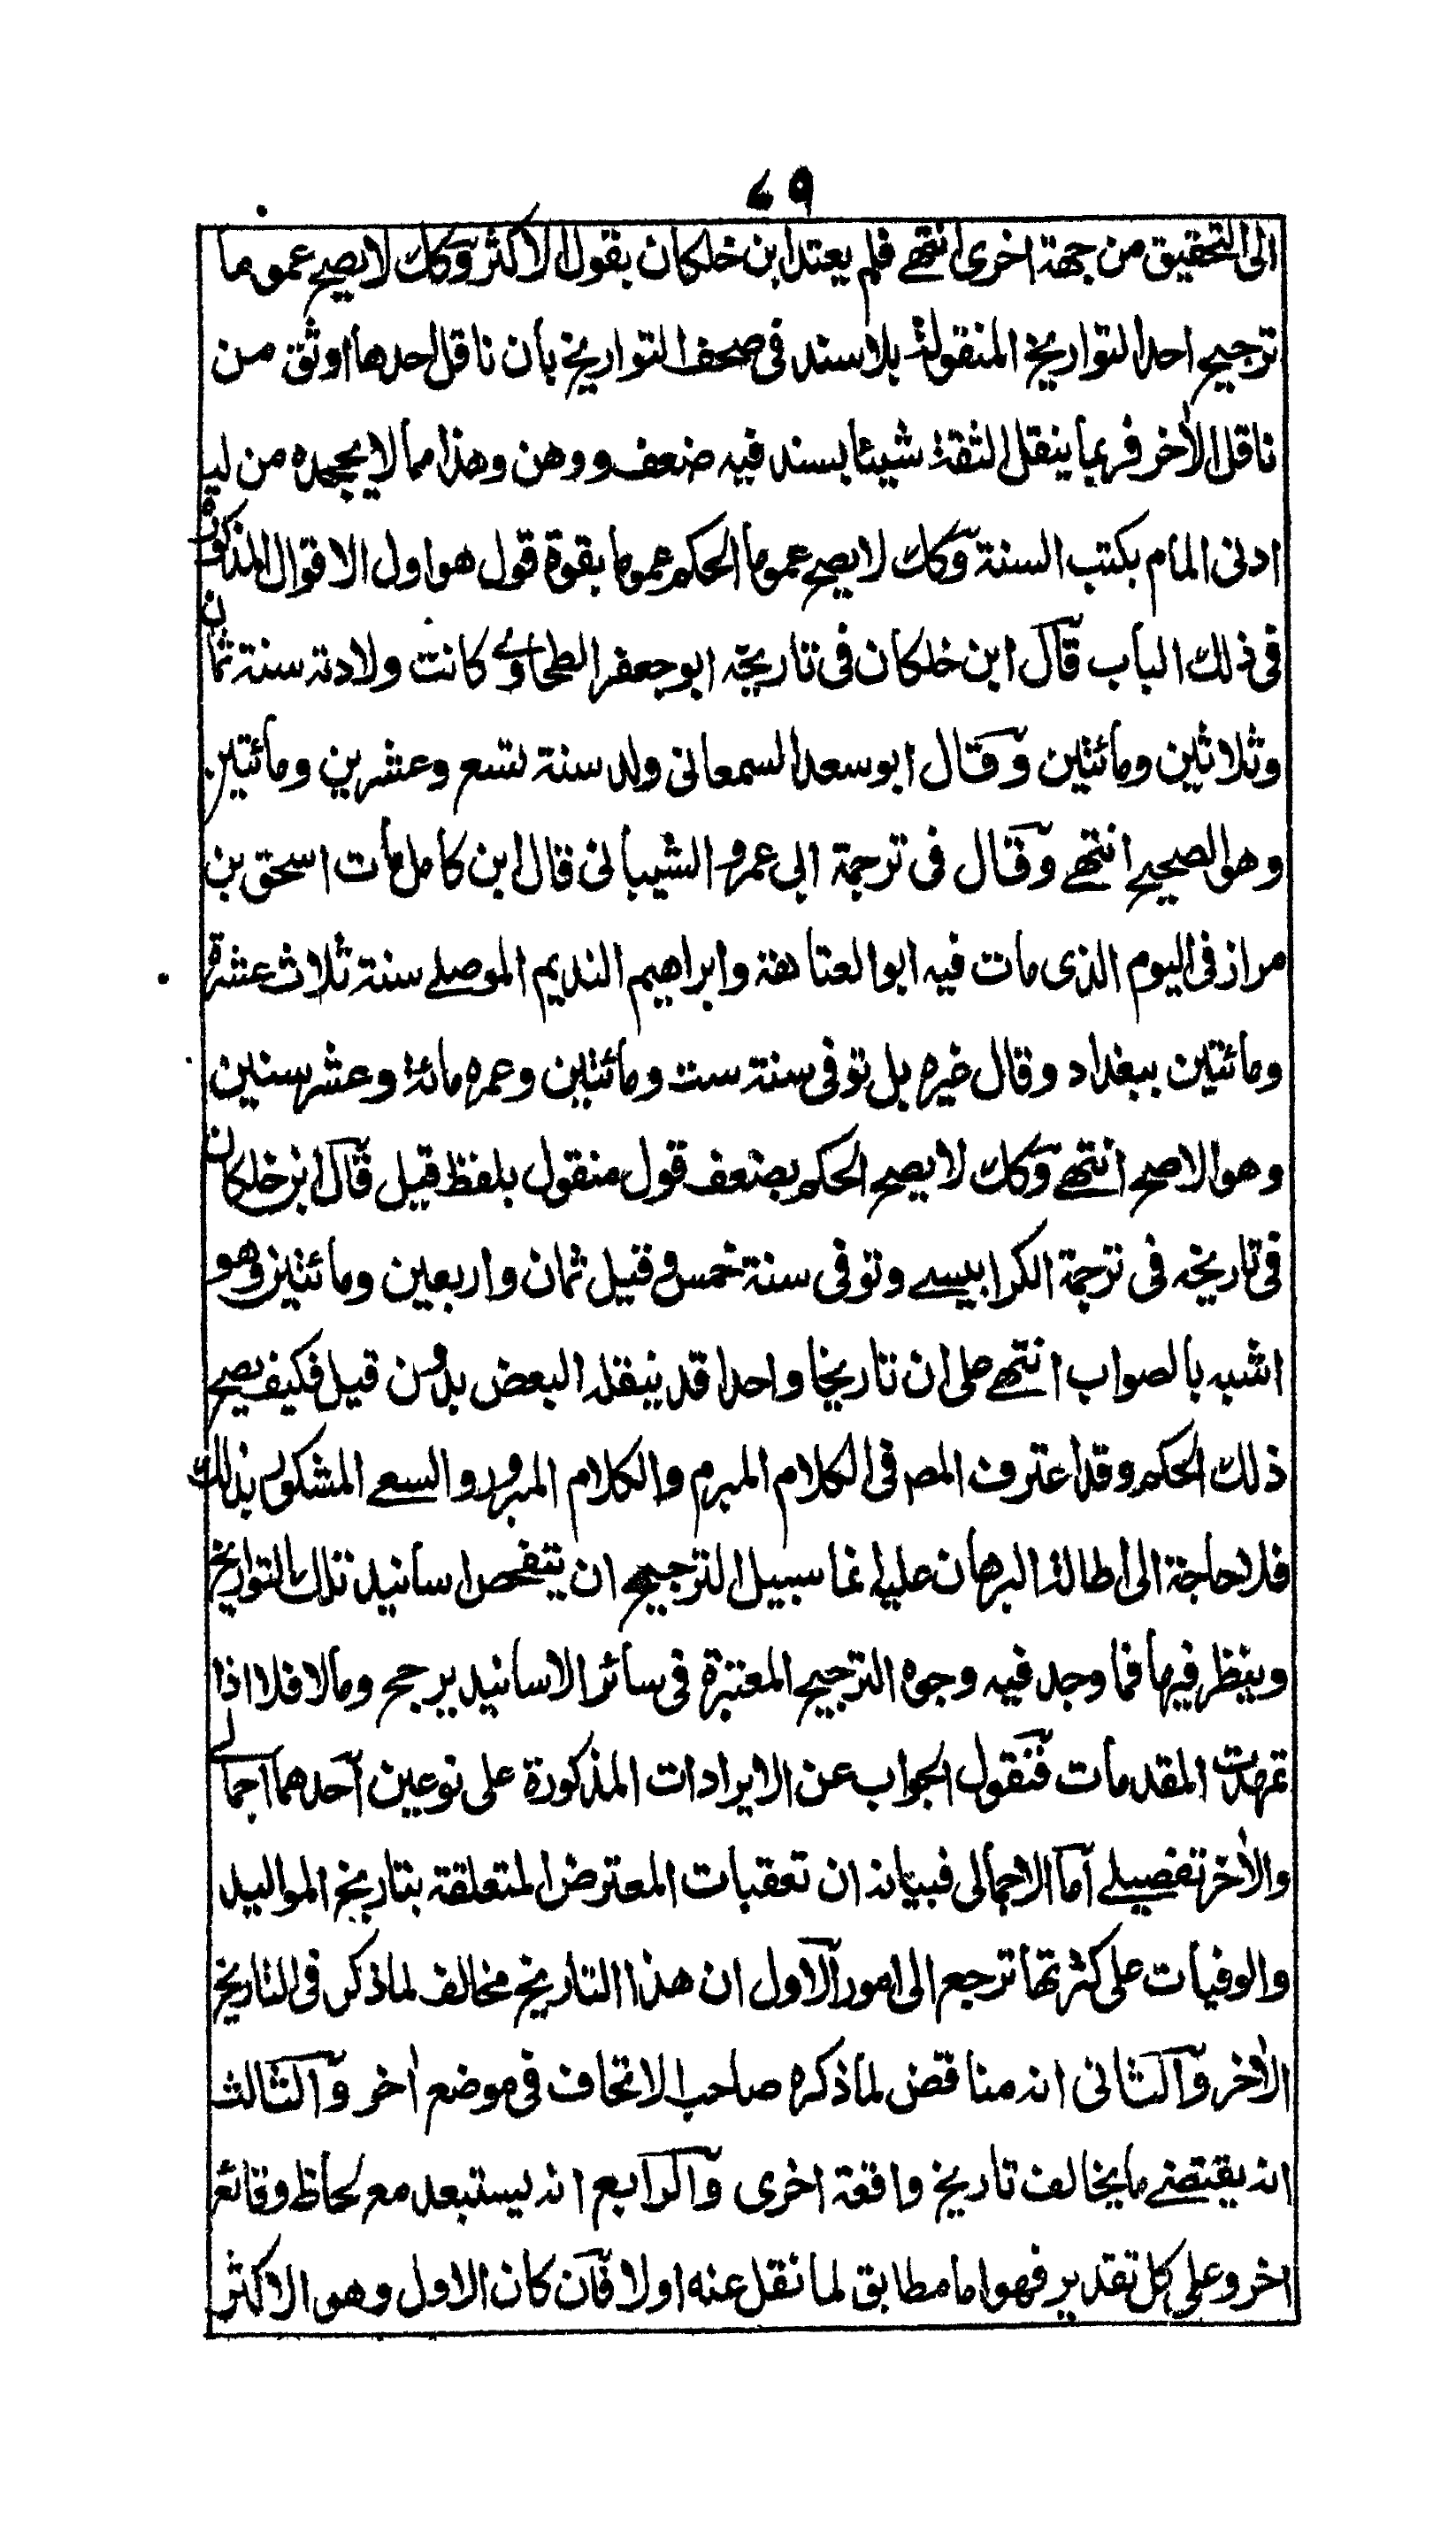 ٧٩
الى التحقيق من جهة اخرى انتهے فلم يعتد ابن خلكان بقول الاكثر وكك لا يصح عموما
ترجيح احد التواريخ المنقولة بلا سند فى صحف التواريخ بان ناقل احدها اوثق من
ناقل الاٰخر فربما ينقل الثقة شيئا بسند فيه ضعف ووهن وهذا مما لا يجحده من ليه
ادنى المام بكتب السنة وكك لا يصح عموما الحكم عموما بقوة قول هو اول الاقوال المذكورة
فى ذلك الباب قال ابن خلكان فى تاريخه ابو جعفر الطحاوے كانت ولادته سنة ثمان
وثلاثين ومائتين وقال ابو سعد السمعانى ولد سنة تسع وعشرين ومائتين
وهو الصحيح انتهے وقال فى ترجمة ابى عمرو الشيبانى قال ابن كامل مات اسحق بن
مرار فى اليوم الذى مات فيه ابو العتاهة وابراهيم النديم الموصلے سنة ثلاث عشرة
ومائتين ببغداد وقال غيره بل توفى سنة ست ومائتين وعمره مائة وعشر سنين
وهو الاصح انتهے وكك لا يصح الحكم بضعف قول منقول بلفظ قيل قال ابن خلكان
فى تاريخه فى ترجمة الكرابيسے وتوفى سنة خمس وقيل ثمان واربعين ومائتين وهو
اشبه بالصواب انتهے على ان تاريخا واحدا قد ينقله البعض بدون قيل فكيف يصح
ذلك الحكم وقد اعترف المصر فى الكلام المبرم والكلام المبرور والسعے المشكور بذلك
فلا حاجة الى اطالة البرهان عليه انما سبيل الترجيح ان يتفحص اسانيد تلك التواريخ
وينظر فيها فما وجد فيه وجوه الترجيح المعتبرة فى سائر الاسانيد يرجح وما لا فلا اذا
تمهدت المقدمات فنقول الجواب عن الايرادات المذكورة على نوعين احدهما اجمالے
والاٰخر تفصيلے اما الاجمالى فبيانه ان تعقبات المعترض المتعلقة بتاريخ المواليد
والوفيات على كثرتها ترجع الى امور الاول ان هذا التاريخ مخالف لما ذكر فى التاريخ
الاٰخر والثانى انه مناقض لما ذكره صاحب الاتحاف فى موضع اٰخر والثالث
انه يقتضے ما يخالف تاريخ واقعة اخرى والرابع انه يستبعد مع لحاظ وقائع
اخر وعلى كل تقدير فهو اما مطابق لما نقل عنه اولا فان كان الاول وهو الاكثر